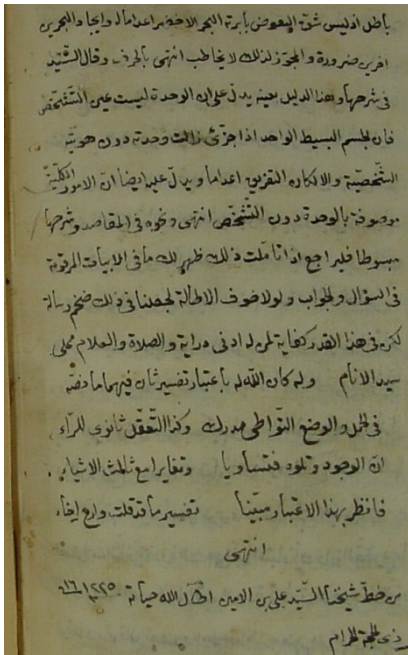 باطل اذ ليس شق البعوض بابرته البحر الاخضر اعداما له وايجادا لبحرين
اخرين ضرورة والمجوز لذلك لا يخاطب انتهى بالحرف وقال السيد
في شرحها وهذا الدليل بعينه يدل على ان الوحدة ليست عين التشخص
فان الجسم البسيط الواحد اذا جزئ زالت وحدته دون هويته
الشخصية والا لكان التفريق اعداما ويدل عليه ايضا ان الامور الكلية
موصوفة بالوحدة دون التشخص انتهى ونحوه في المقاصد وشرحها
مبسوطا فليراجع اذا تاملت ذلك ظهر لك ما في الابيات المرقومة
في السؤال والجواب ولولا خوف الاطالة لجعلنا في ذلك ضخم رسالة
لكن في هذا القدر كفاية لمن له ادنى دراية والصلاة والسلام على
سيد الانام وله كان الله له باعتبار تفسير ثان فيهما ما نصه
في الحمل والوضع التواطي مدرك وكذا التعقل ثانوي للراء
ان الوجود وتلوه قد تساويا وتغايرا مع ثالث الاشياء
فانظر بهذا الاعتبار مبينا تفسير ما قد قلت وارع اخاء
انتهى
من خط شيخنا السيد علي بن الامين اطال الله حياته ١٢٢٥ ١٦
ذي الحجة الحرام